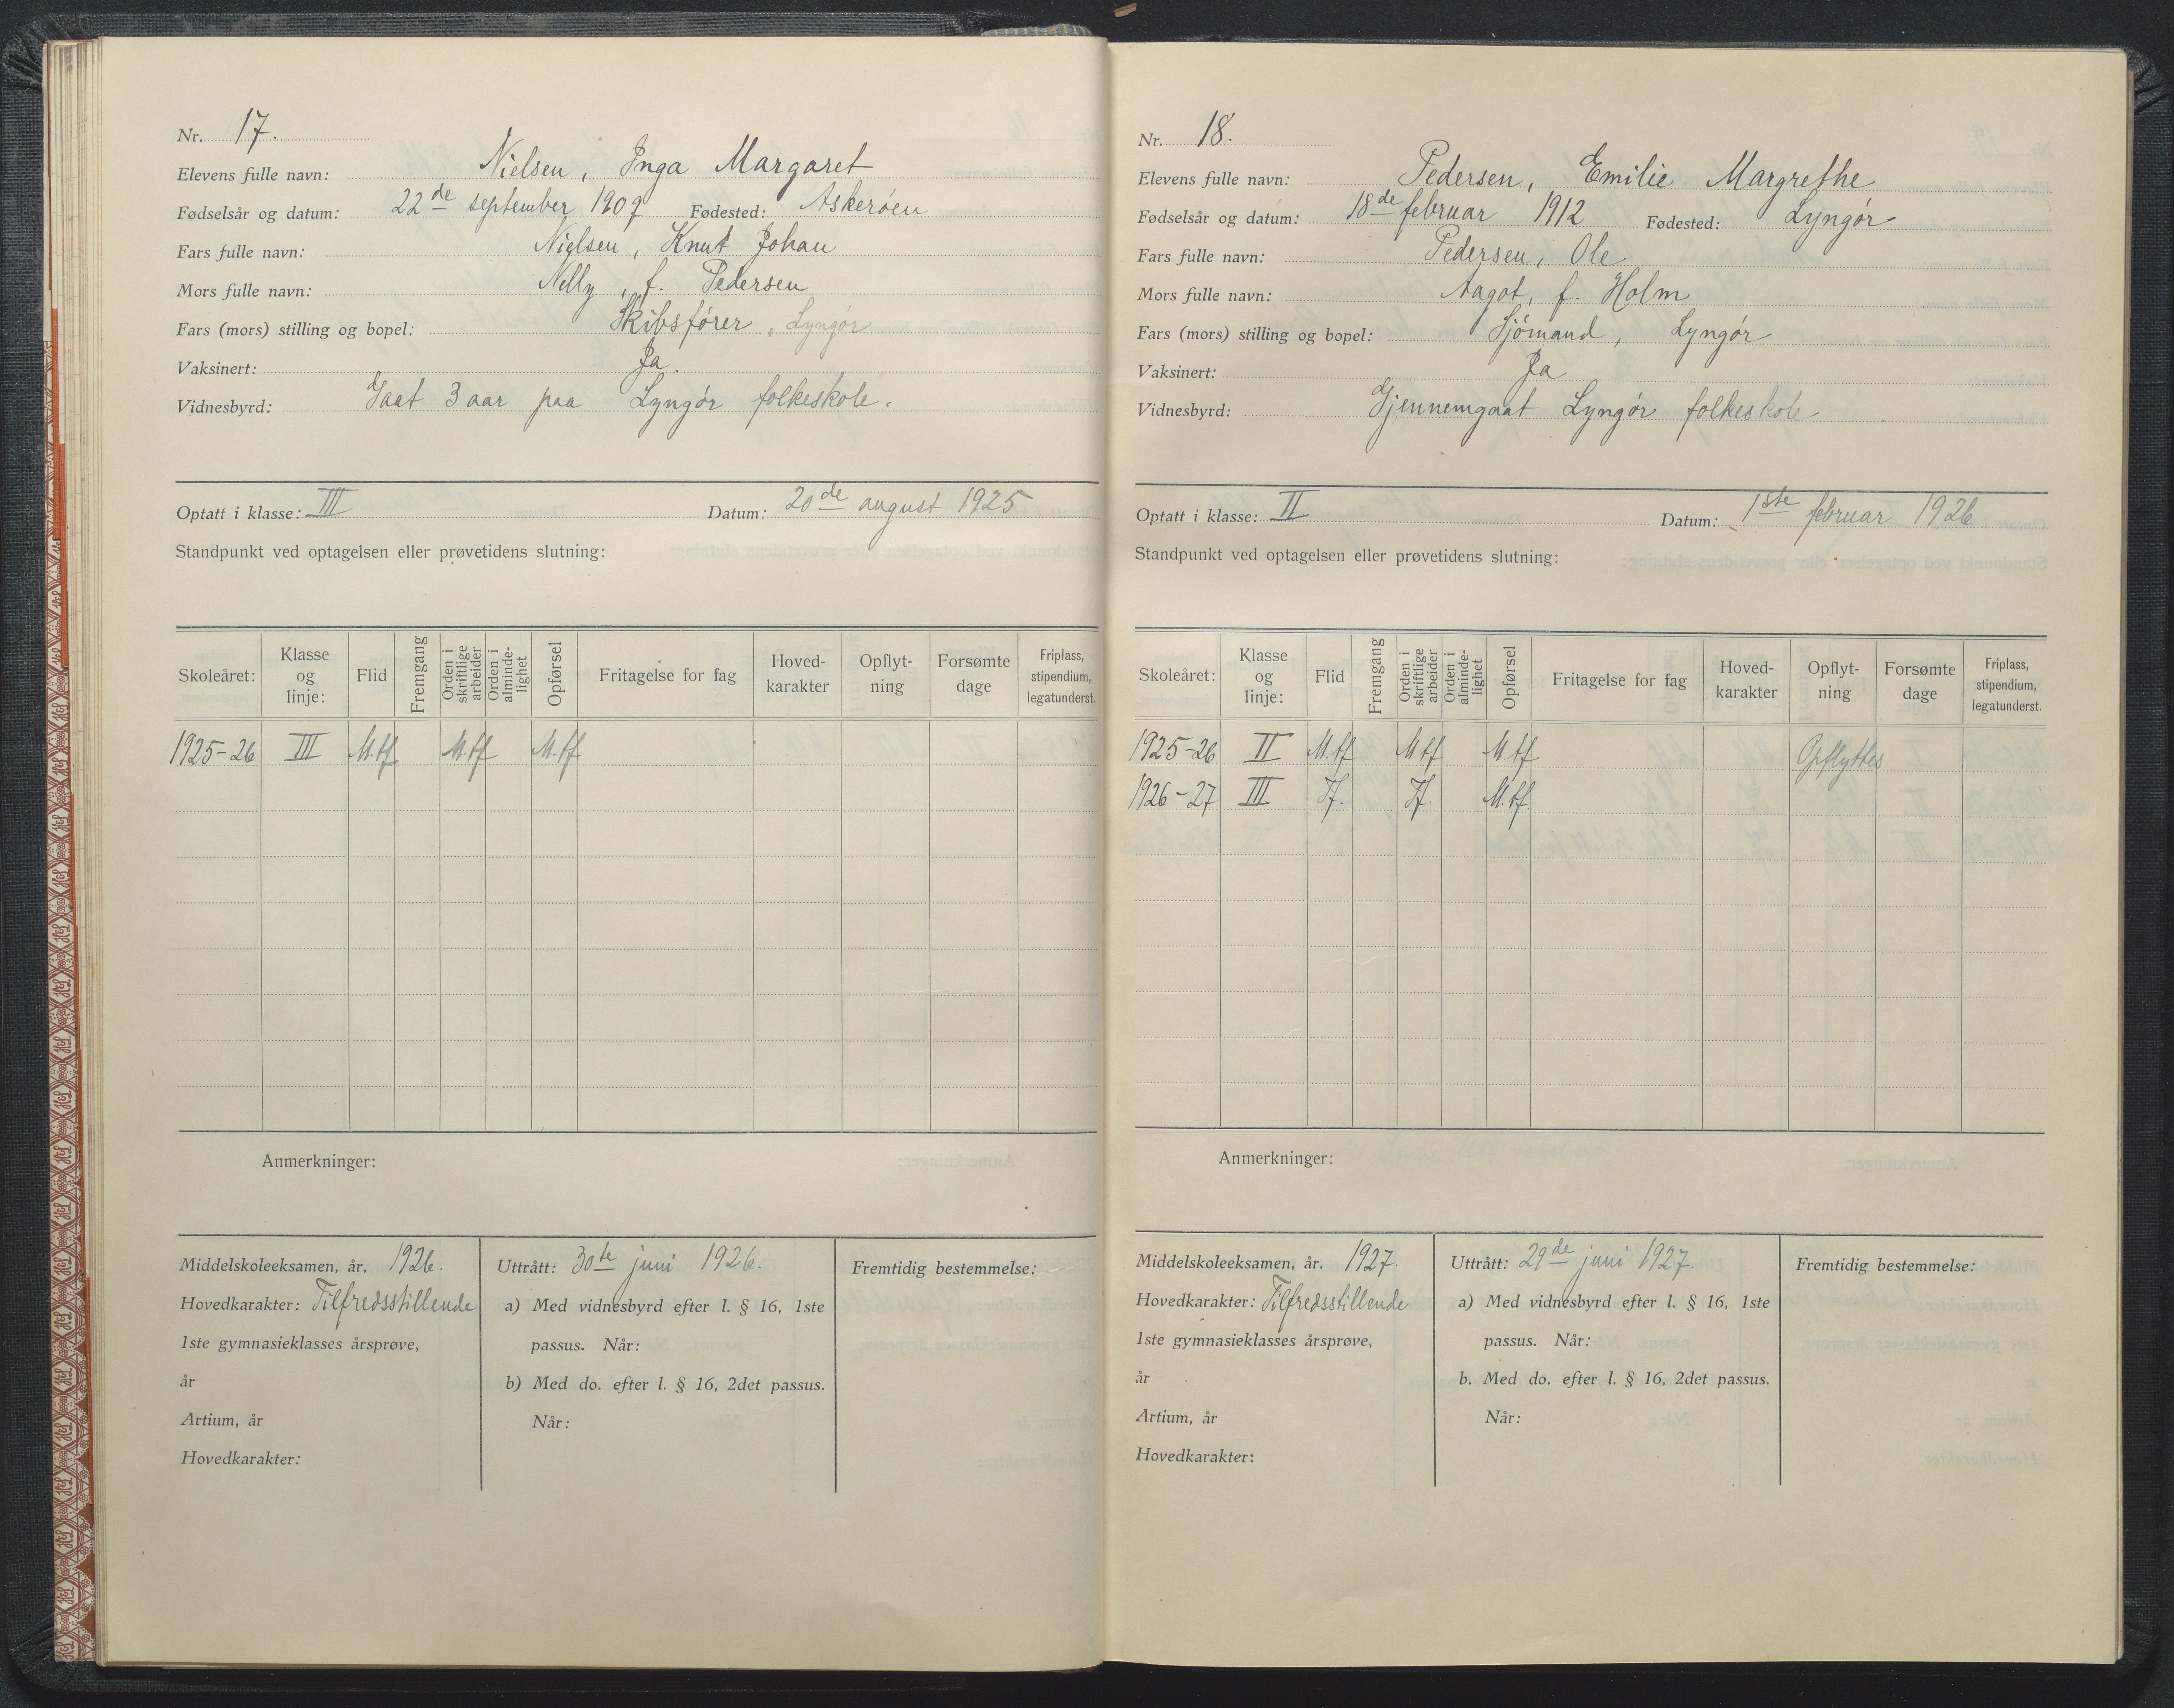 Nr. 17.
Elevens fulle navn: Nielsen, Inga Margaret
Fødselsår og datum: 22de september 1909 Fødested: Askerøen
Fars fulle navn: Nielsen, Knut Johan
Mors fulle navn: Nelly, f. Pedersen
Fars (mors) stilling og bopel: Skibsfører, Lyngør
Vaksinert: Ja.
Vidnesbyrd: Gaat 3 aar paa Lyngør folkeskole.
Optatt i klasse: III Datum: 20de august 1925
Standpunkt ved optagelsen eller prøvetidens slutning:
Skoleåret: Klasse og linje: Flid Fremgang Orden i skriftlige arbeider Orden i alminde-lighet Opførsel Fritagelse for fag Hoved-karakter Opflyt-ning Forsømte dage Friplass, stipendium, legatunderst.
1925-26 III M.tf M.tf M.tf
Anmerkninger:
Middelskoleeksamen, år, 1926.
Hovedkarakter: Tilfredsstillende
1ste gymnasieklasses årsprøve,
år
Artium, år
Hovedkarakter:
Uttrått: 30te juni 1926.
a) Med vidnesbyrd efter l. § 16, 1ste
passus. Når:
b) Med do. efter l. § 16, 2det passus.
Når:
Fremtidig bestemmelse:
Nr. 18.
Elevens fulle navn: Pedersen, Emilie Margrethe
Fødselsår og datum: 18de februar 1912 Fødested: Lyngør
Fars fulle navn: Pedersen, Ole
Mors fulle navn: Aagot, f. Holm
Fars (mors) stilling og bopel: Sjømand, Lyngør
Vaksinert: Ja
Vidnesbyrd: Gjennemgaat Lyngør folkeskole
Optatt i klasse: II Datum: 1ste februar 1926
Standpunkt ved optagelsen eller prøvetidens slutning:
Skoleåret: Klasse og linje: Flid Fremgang Orden i skriftlige arbeider Orden i alminde-lighet Opførsel Fritagelse for fag Hoved-karakter Opflyt-ning Forsømte dage Friplass, stipendium, legatunderst.
1925-26 II M.tf M.tf M.tf Opflyttes
1926-27 III Tf. Tf. M.tf.
Anmerkninger:
Middelskoleeksamen, år. 1927.
Hovedkarakter: Tilfredsstillende
1ste gymnasieklasses årsprøve,
år
Artium, år
Hovedkarakter:
Uttrått: 29de juni 1927.
a) Med vidnesbyrd efter l. § 16, 1ste
passus. Når:
b. Med do. efter l. § 16, 2det passus.
Når:
Fremtidig bestemmelse: